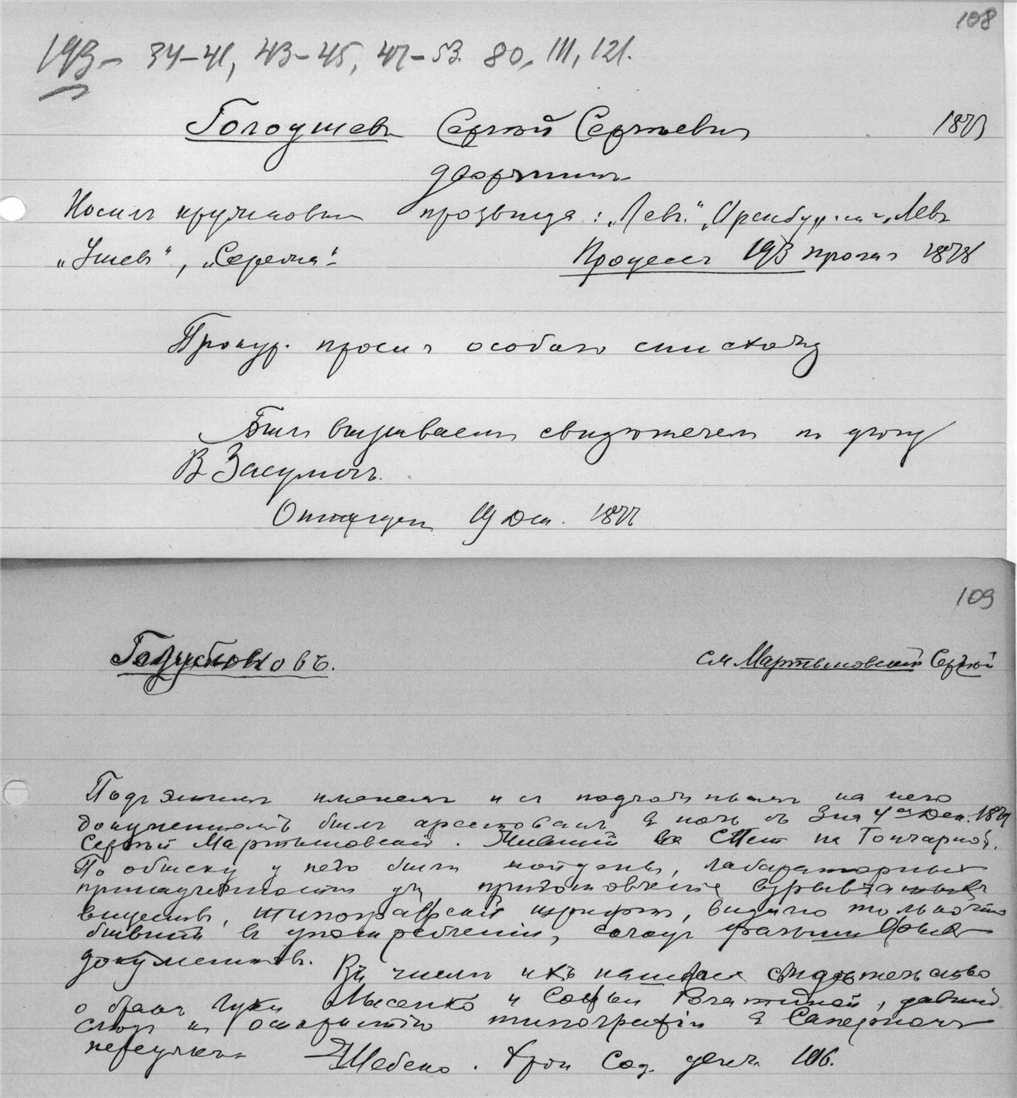 108
193 – 34–41, 43–45, 47–53. 80, 111, 121.
Голоушевъ Сергѣй Сергѣевич 187
дворянин
Носилъ кружковыя прозвища: „Левъ", „Левъ
„Ушевъ", „Сережа".
Процессъ 193 1878
Прокур. просил особаго снисхожд
Былъ вызываем свидѣтелем по делу
В Засулич.
Отпущен 19 Дек. 1877
109
Голубиновъ.
см Мартыновскій Сергѣй
Подъ этимъ именемъ и съ подложнымъ на него
документомъ былъ арестованъ в ночь съ 3 на 4ое Дек. 1879
Сергѣй Мартыновскій. Жившій въ СПет на Гончарной.
По обыску у него были найдены, лабораторныя
принадлежности для приготовленія взрывчатыхъ
веществъ, типографскій шрифт, видимо только что
бывшій в употребленіи, бланки
документов. Въ числѣ ихъ нашлось свидѣтельство
о бракѣ Луки Лысенко и Софьи, давшій
слѣд к открытію типографіи в Саперномъ
переулкѣ. Шебеко. Хрон Соц. движ. 106.